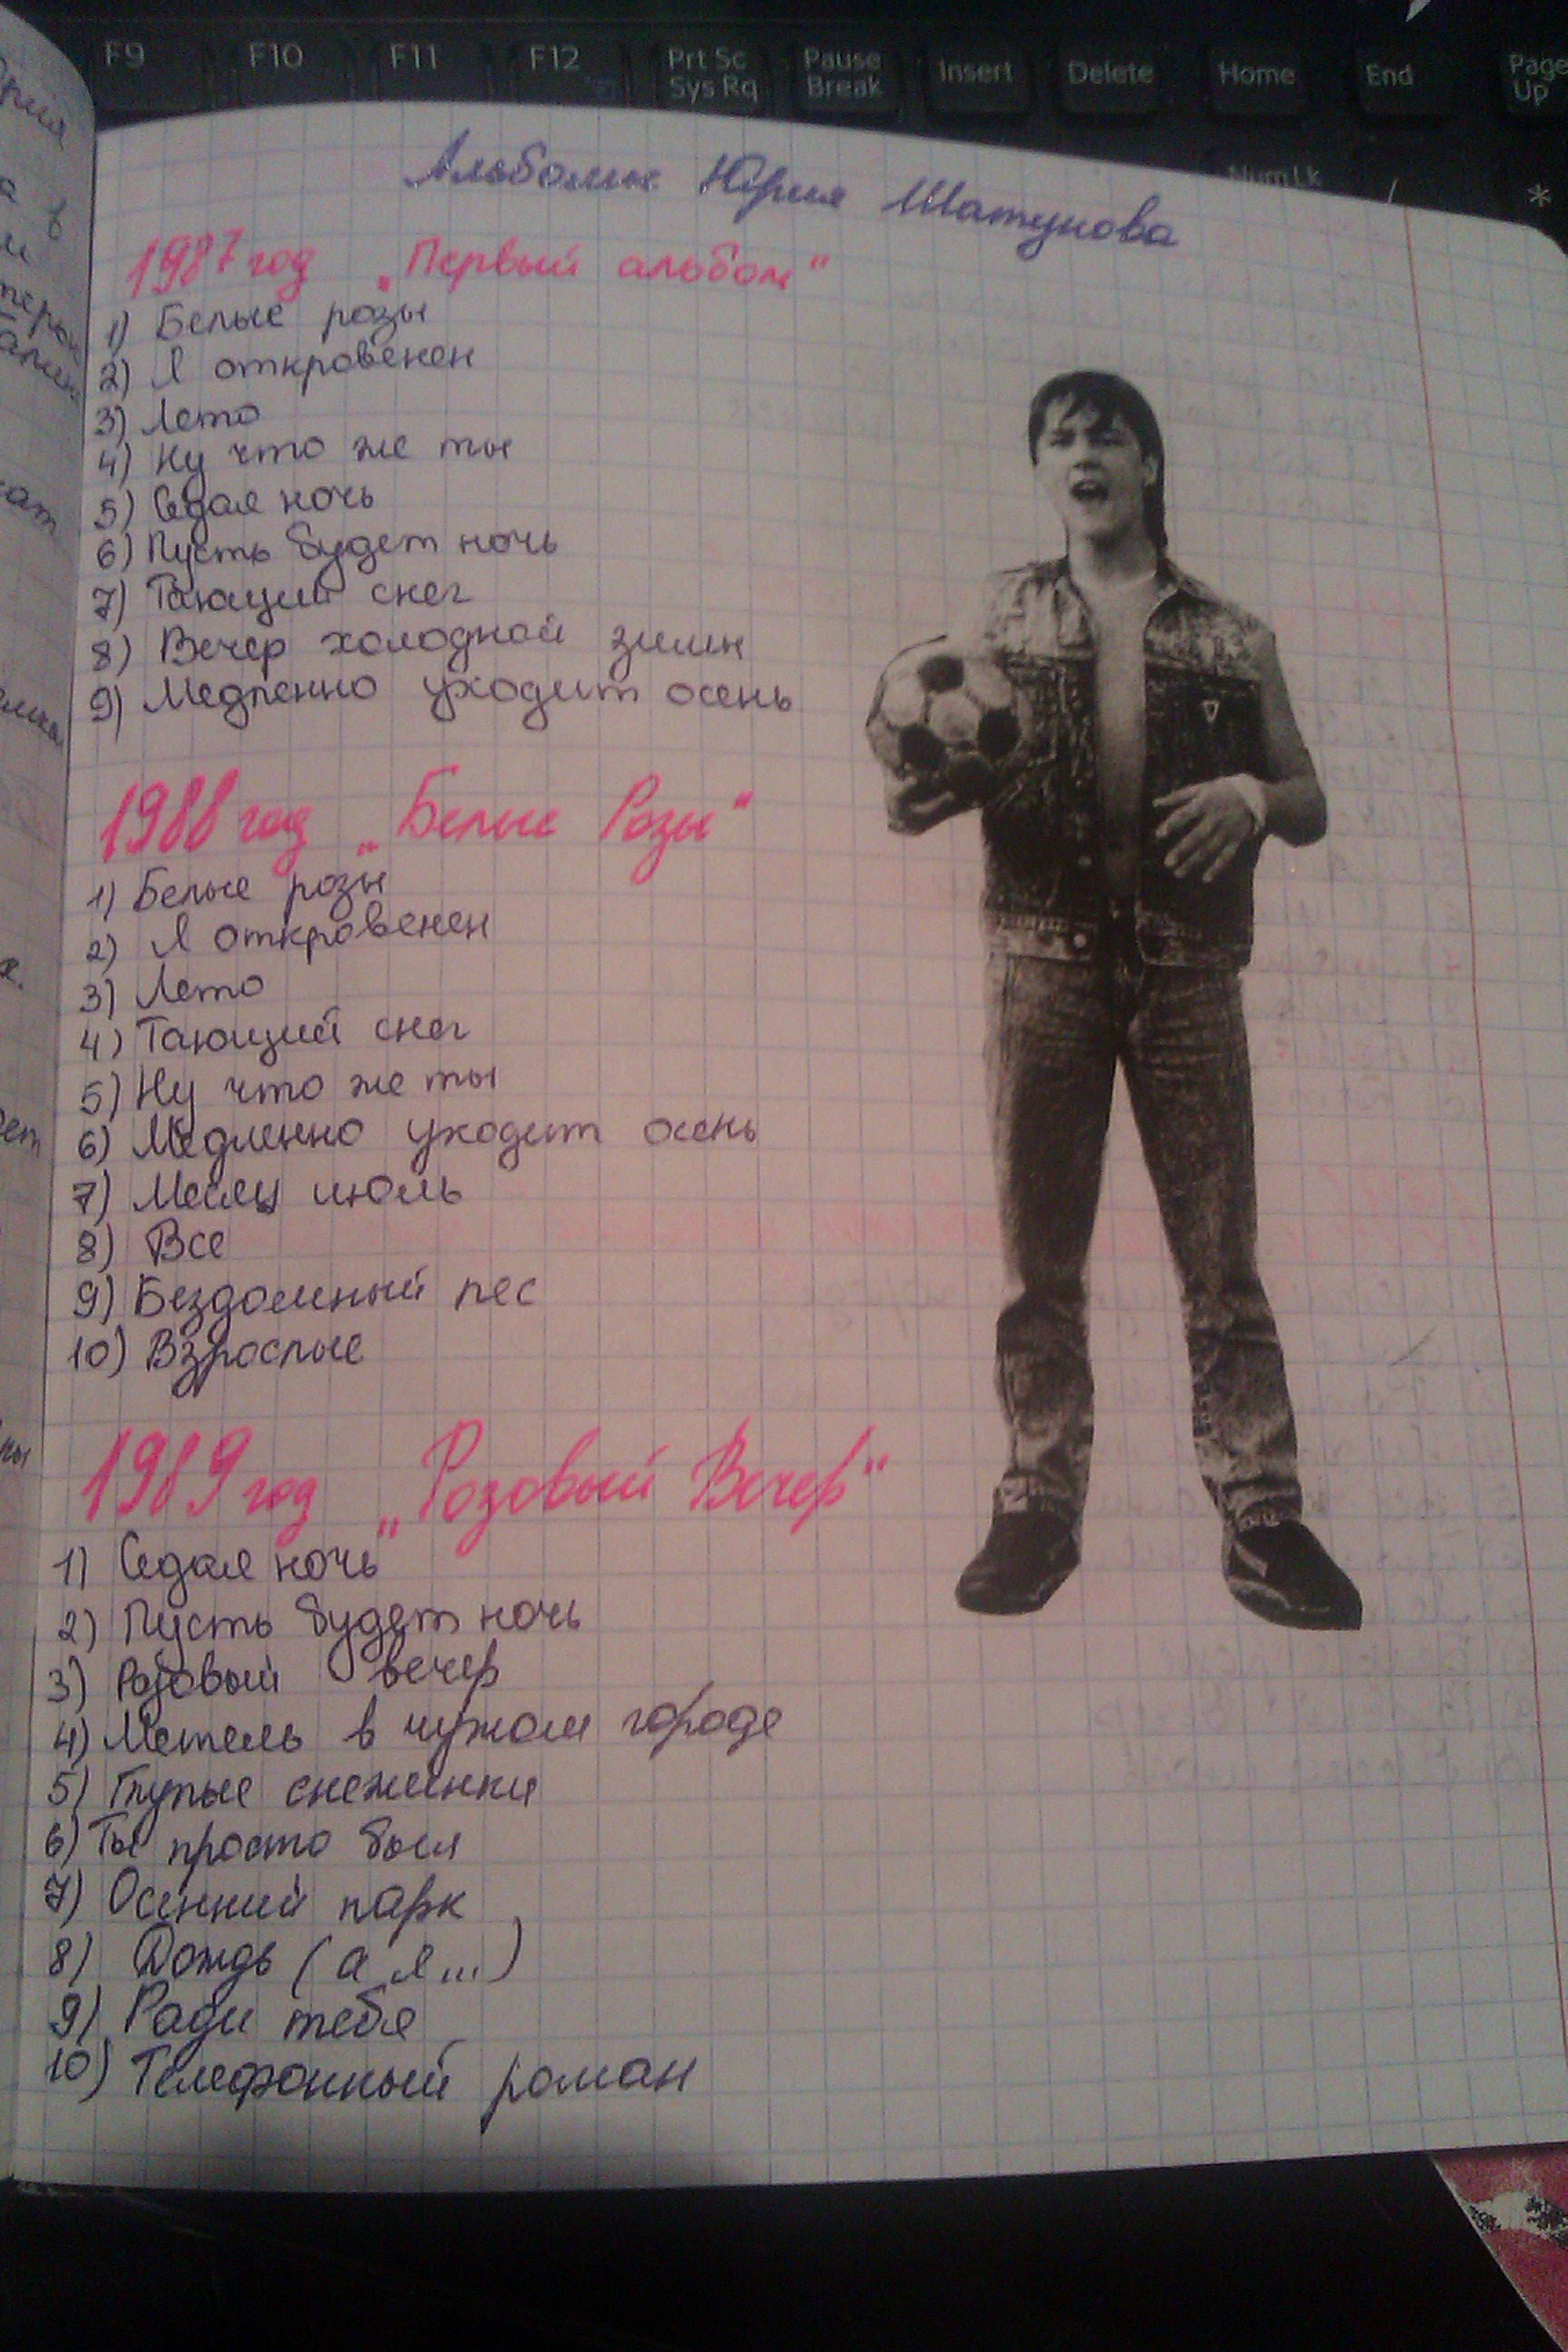 F9 F10 F11 F12 Prt Sc Sys Rq Pause Break Insert Delete Home End Page Up
Num Lk / *
Альбомы Юрия Шатунова
1987 год „Первый альбом“
1) Белые розы
2) Я откровенен
3) Лето
4) Ну что же ты
5) Седая ночь
6) Пусть будет ночь
7) Тающий снег
8) Вечер холодной зимы
9) Медленно уходит осень
1988 год „Белые Розы“
1) Белые розы
2) Я откровенен
3) Лето
4) Тающий снег
5) Ну что же ты
6) Медленно уходит осень
7) Месяц июль
8) Все
9) Бездомный пес
10) Взрослые
1989 год „Розовый Вечер“
1) Седая ночь
2) Пусть будет ночь
3) Розовый вечер
4) Метель в чужом городе
5) Глупые снежинки
6) Ты просто был
7) Осенний парк
8) Дождь (а я...)
9) Ради тебя
10) Телефонный роман